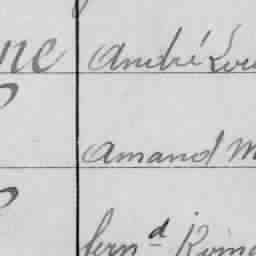 ne André Lou
Amand M
fern d Rom